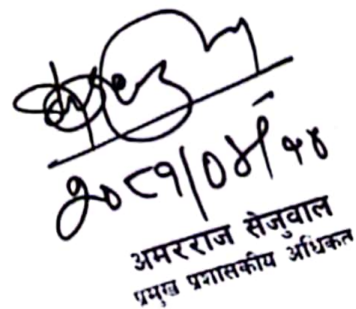 २०८१/०४/१४
अमरराज सेजुवाल
प्रमुख प्रशासकीय अधिकृत